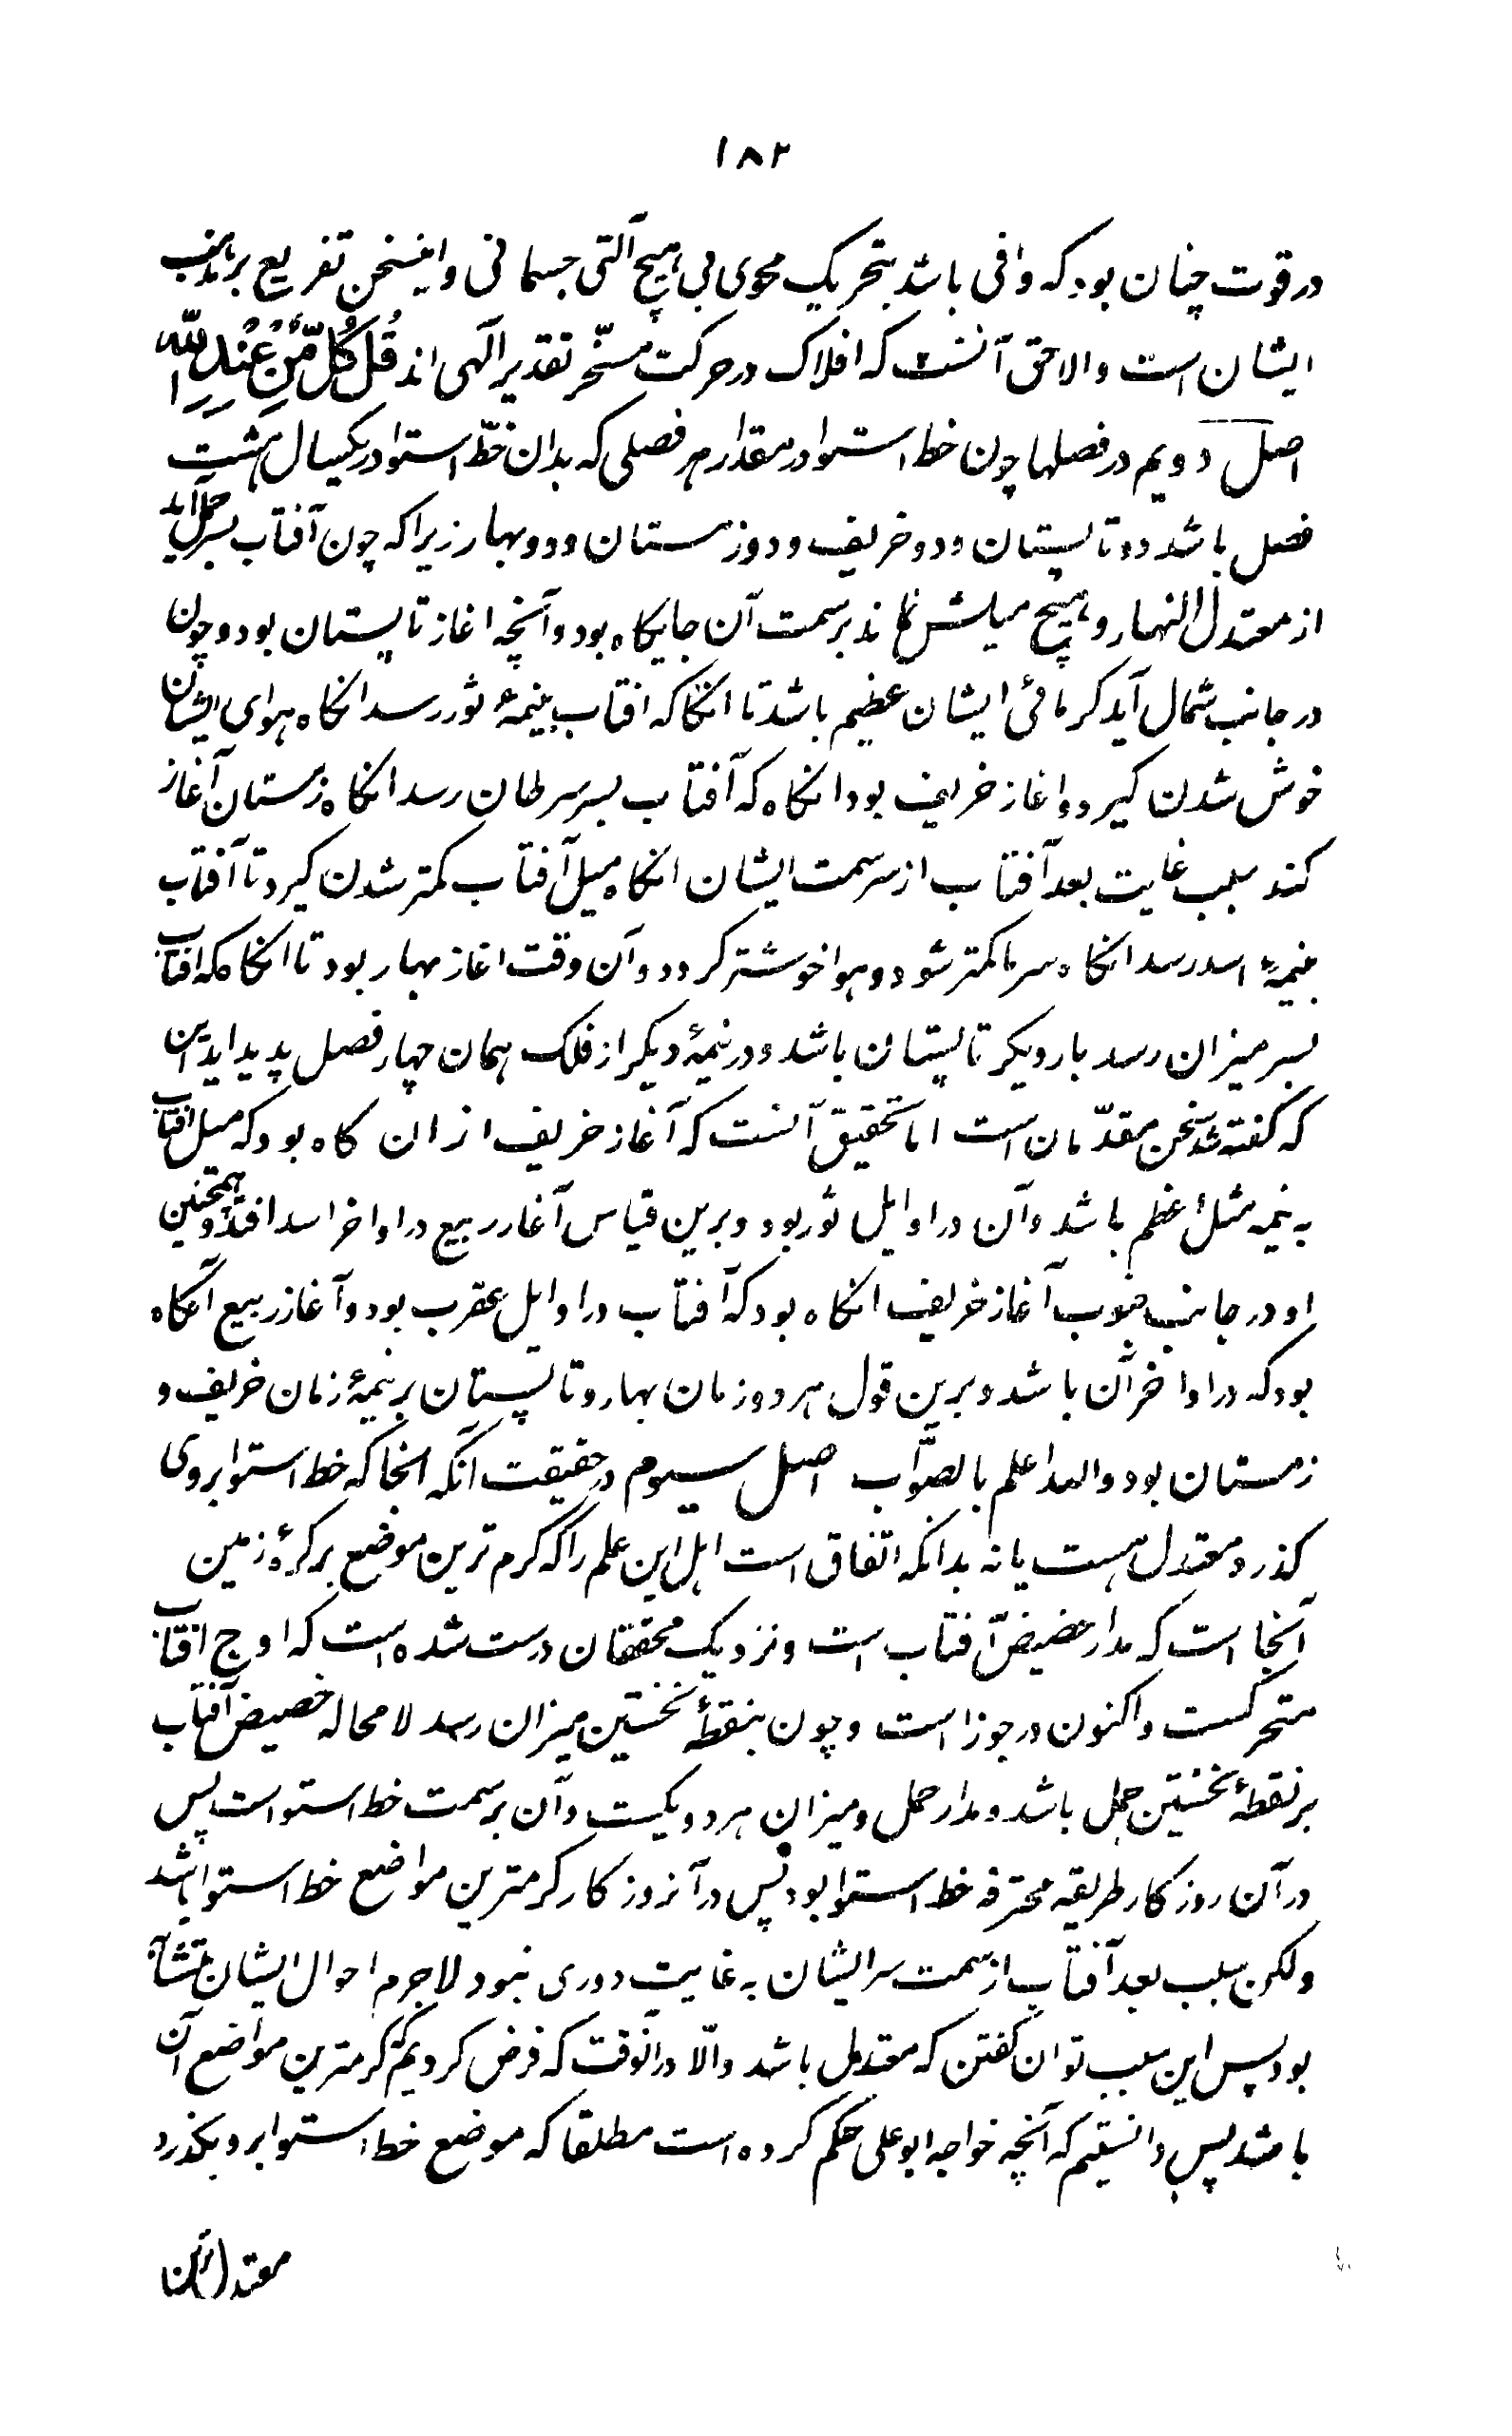 ۱۸۲
در قوت چنان بود که وافی باشد بتحریک محوی بی هیچ آلتی جسمانی و اینسخن تفریع بر مذهب
ایشان است والا حق آنست که افلاک در حرکت مسخّر تقدیر آلهی اند قُل كُلٌّ مِّنْ عِنْدِ اللّٰه
اصل دویم در فصلها چون خط استوا در مقدار هر فصلی که بدان خطّ استوا در یکسال هشت
فصل باشد دو تابستان و دو خریف و دو زمستان و دو بهار زیرا که چون آفتاب بسر حمل آید
از معتدل النهار و هیچ میلش نماند بر سمت آن جایکاه بود و آنچه اغاز تابستان بود و چون
در جانب شمال آید کرمائی ایشان عظیم باشد تا انکاکه افتاب بنیمهٔ ثور رسد انکاه هوای ایشان
خوش شدن کیرد و اغاز خریف بود انکاه که آفتاب بسر سرطان رسد انکاه زمستان آغاز
کند بسبب غایت بعد آفتاب از سرسمت ایشان انکاه میل آفتاب کمتر شدن کیرد تا آفتاب
بنیمهٔ اسد رسد انکاه سرما کمتر شود و هوا خوشتر کردد و آن وقت اغاز بهار بود تا انکاه که افتاب
بسر میزان رسد بار دیکر تابستان باشد و در نیمهٔ دیکر از فلک همان چهار فصل پدید اید این
که کفته شد سخن مقدّمان است اما تحقیق آنست که آغاز خریف از ان کاه بود که میل افتاب
به نیمه مثل اعظم باشد و آن در اوایل ثور بود و برین قیاس آغاز ربیع در اواخر اسد افتد و همچنین
او در جانب جنوب آغاز خریف انکاه بود که آفتاب در اوایل عقرب بود و آغاز ربیع آنکاه
بود که در اواخر آن باشد و برین قول هر دو زمان بهار و تابستان بر نیمهٔ زمان خریف و
زمستان بود والله اعلم بالصّواب اصل سیوم در حقیقت انکه انجا که خط استوا بروی
کذرد معتدل هست یا نه بدانکه اتفاق است اهل این علم را که کرم ترین موضع بر کرهٔ زمین
آنجا است که مدار حضیض آفتاب است و نزدیک محققان درست شده است که اوج افتاب
متحرکست و اکنون در جوزا است و چون بنقطهٔ نخستین میزان رسد لامحاله حضیض آفتاب
بر نقطهٔ نخستین حمل باشد و مدار حمل و میزان هر دو یکیست و آن بر سمت خط استوا است پس
در آن روز کار طریقه محترقه خط استوا بود پس در آنروز کار کرمترین مواضع خط استوا باشد
ولکن بسبب بعد آفتاب از سمت سر ایشان به غایت دوری نبود لاجرم احوال ایشان متشابه
بود پس این سبب توان کفتن که معتدل باشد والّا در انوقت که فرض کردیم که کرمترین مواضع آن
باشد پس دانستیم که آنچه خواجه ابوعلی حکم کرده است مطلقا که موضع خط استوا برو بکذرد